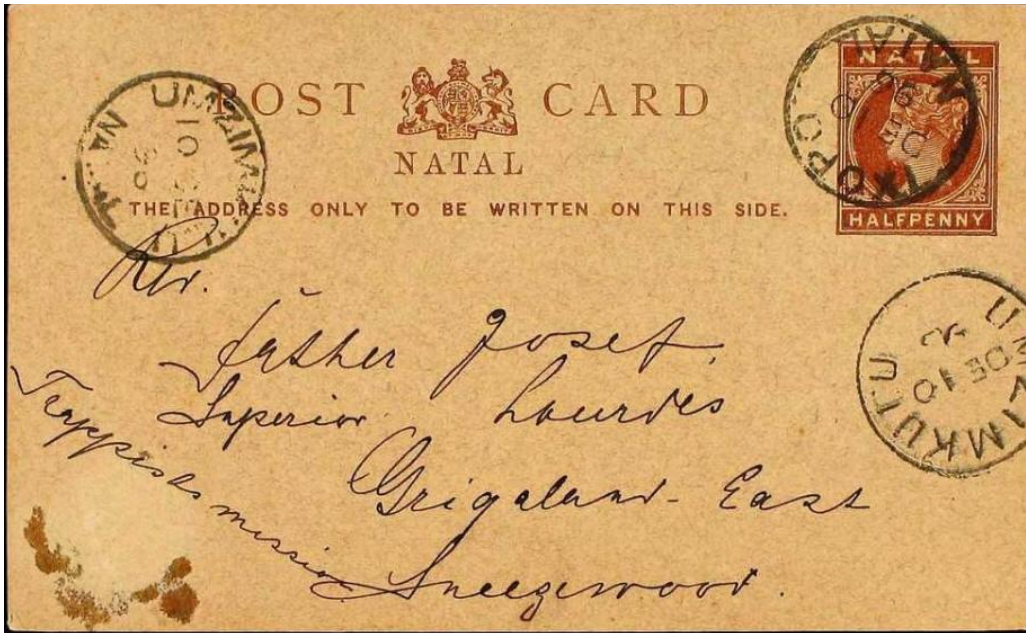 POST CARD
NATAL
THE ADDRESS ONLY TO BE WRITTEN ON THIS SIDE.
NATAL
HALFPENNY
IXOPO
NATAL
DE
UMZIMKULU
NATAL
UMZIMKULU
DE 10
Rev.
Father Josef,
Superior Lourdes
Trappists mission
Griqaland-East
Sneezewood.